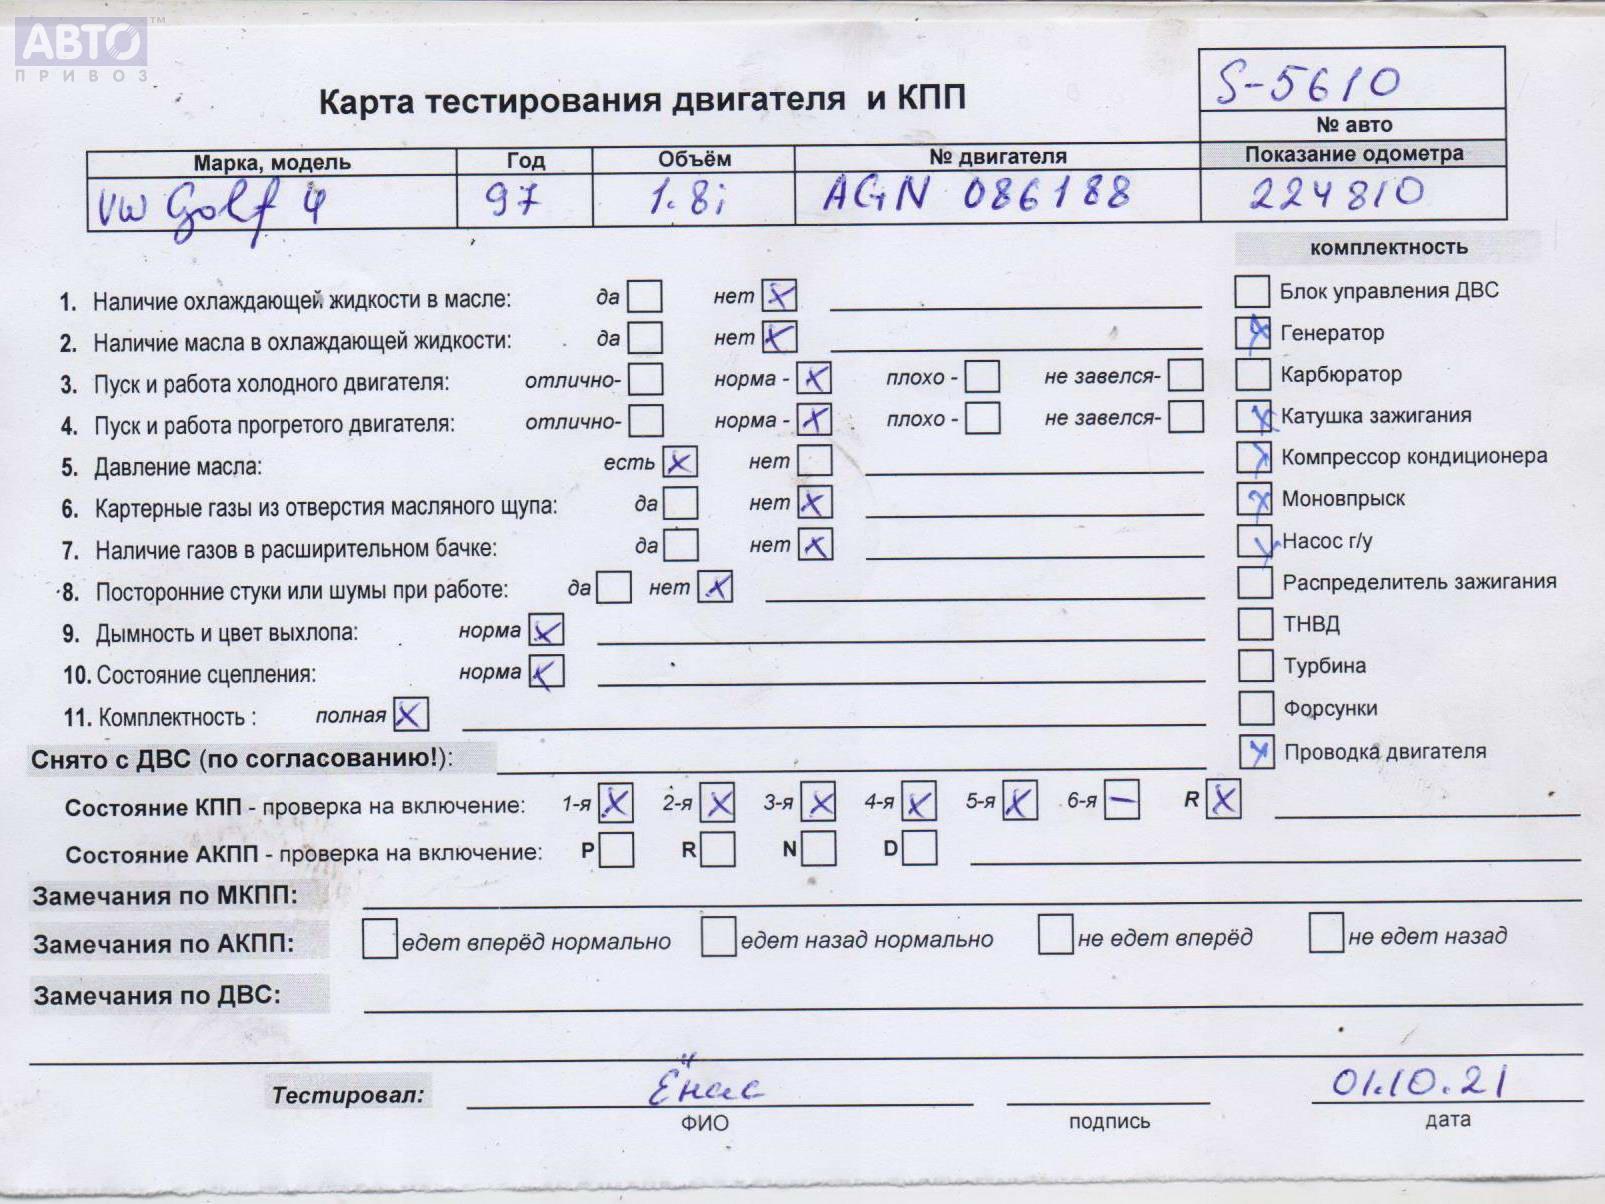 АВТО™
ПРИВОЗ
Карта тестирования двигателя и КПП
S-5610
№ авто
Марка, модель Год Объём № двигателя Показание одометра
VW Golf 4 97 1.8i AGN 086188 224810
комплектность
1. Наличие охлаждающей жидкости в масле: да нет X
Блок управления ДВС
2. Наличие масла в охлаждающей жидкости: да нет X
X Генератор
3. Пуск и работа холодного двигателя: отлично- норма - X плохо - не завелся-
Карбюратор
4. Пуск и работа прогретого двигателя: отлично- норма - X плохо - не завелся-
X Катушка зажигания
5. Давление масла: есть X нет
X Компрессор кондиционера
6. Картерные газы из отверстия масляного щупа: да нет X
X Моновпрыск
7. Наличие газов в расширительном бачке: да нет X
X Насос г/у
8. Посторонние стуки или шумы при работе: да нет X
Распределитель зажигания
9. Дымность и цвет выхлопа: норма X
ТНВД
10. Состояние сцепления: норма X
Турбина
11. Комплектность : полная X
Форсунки
Снято с ДВС (по согласованию!):
X Проводка двигателя
Состояние КПП - проверка на включение: 1-я X 2-я X 3-я X 4-я X 5-я X 6-я — R X
Состояние АКПП - проверка на включение: P R N D
Замечания по МКПП:
Замечания по АКПП: едет вперёд нормально едет назад нормально не едет вперёд не едет назад
Замечания по ДВС:
Тестировал: Ёнас 01.10.21
ФИО подпись дата